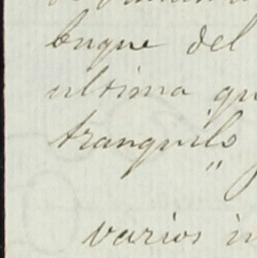 buque del
ultima qu
tranquilo
"
varios i